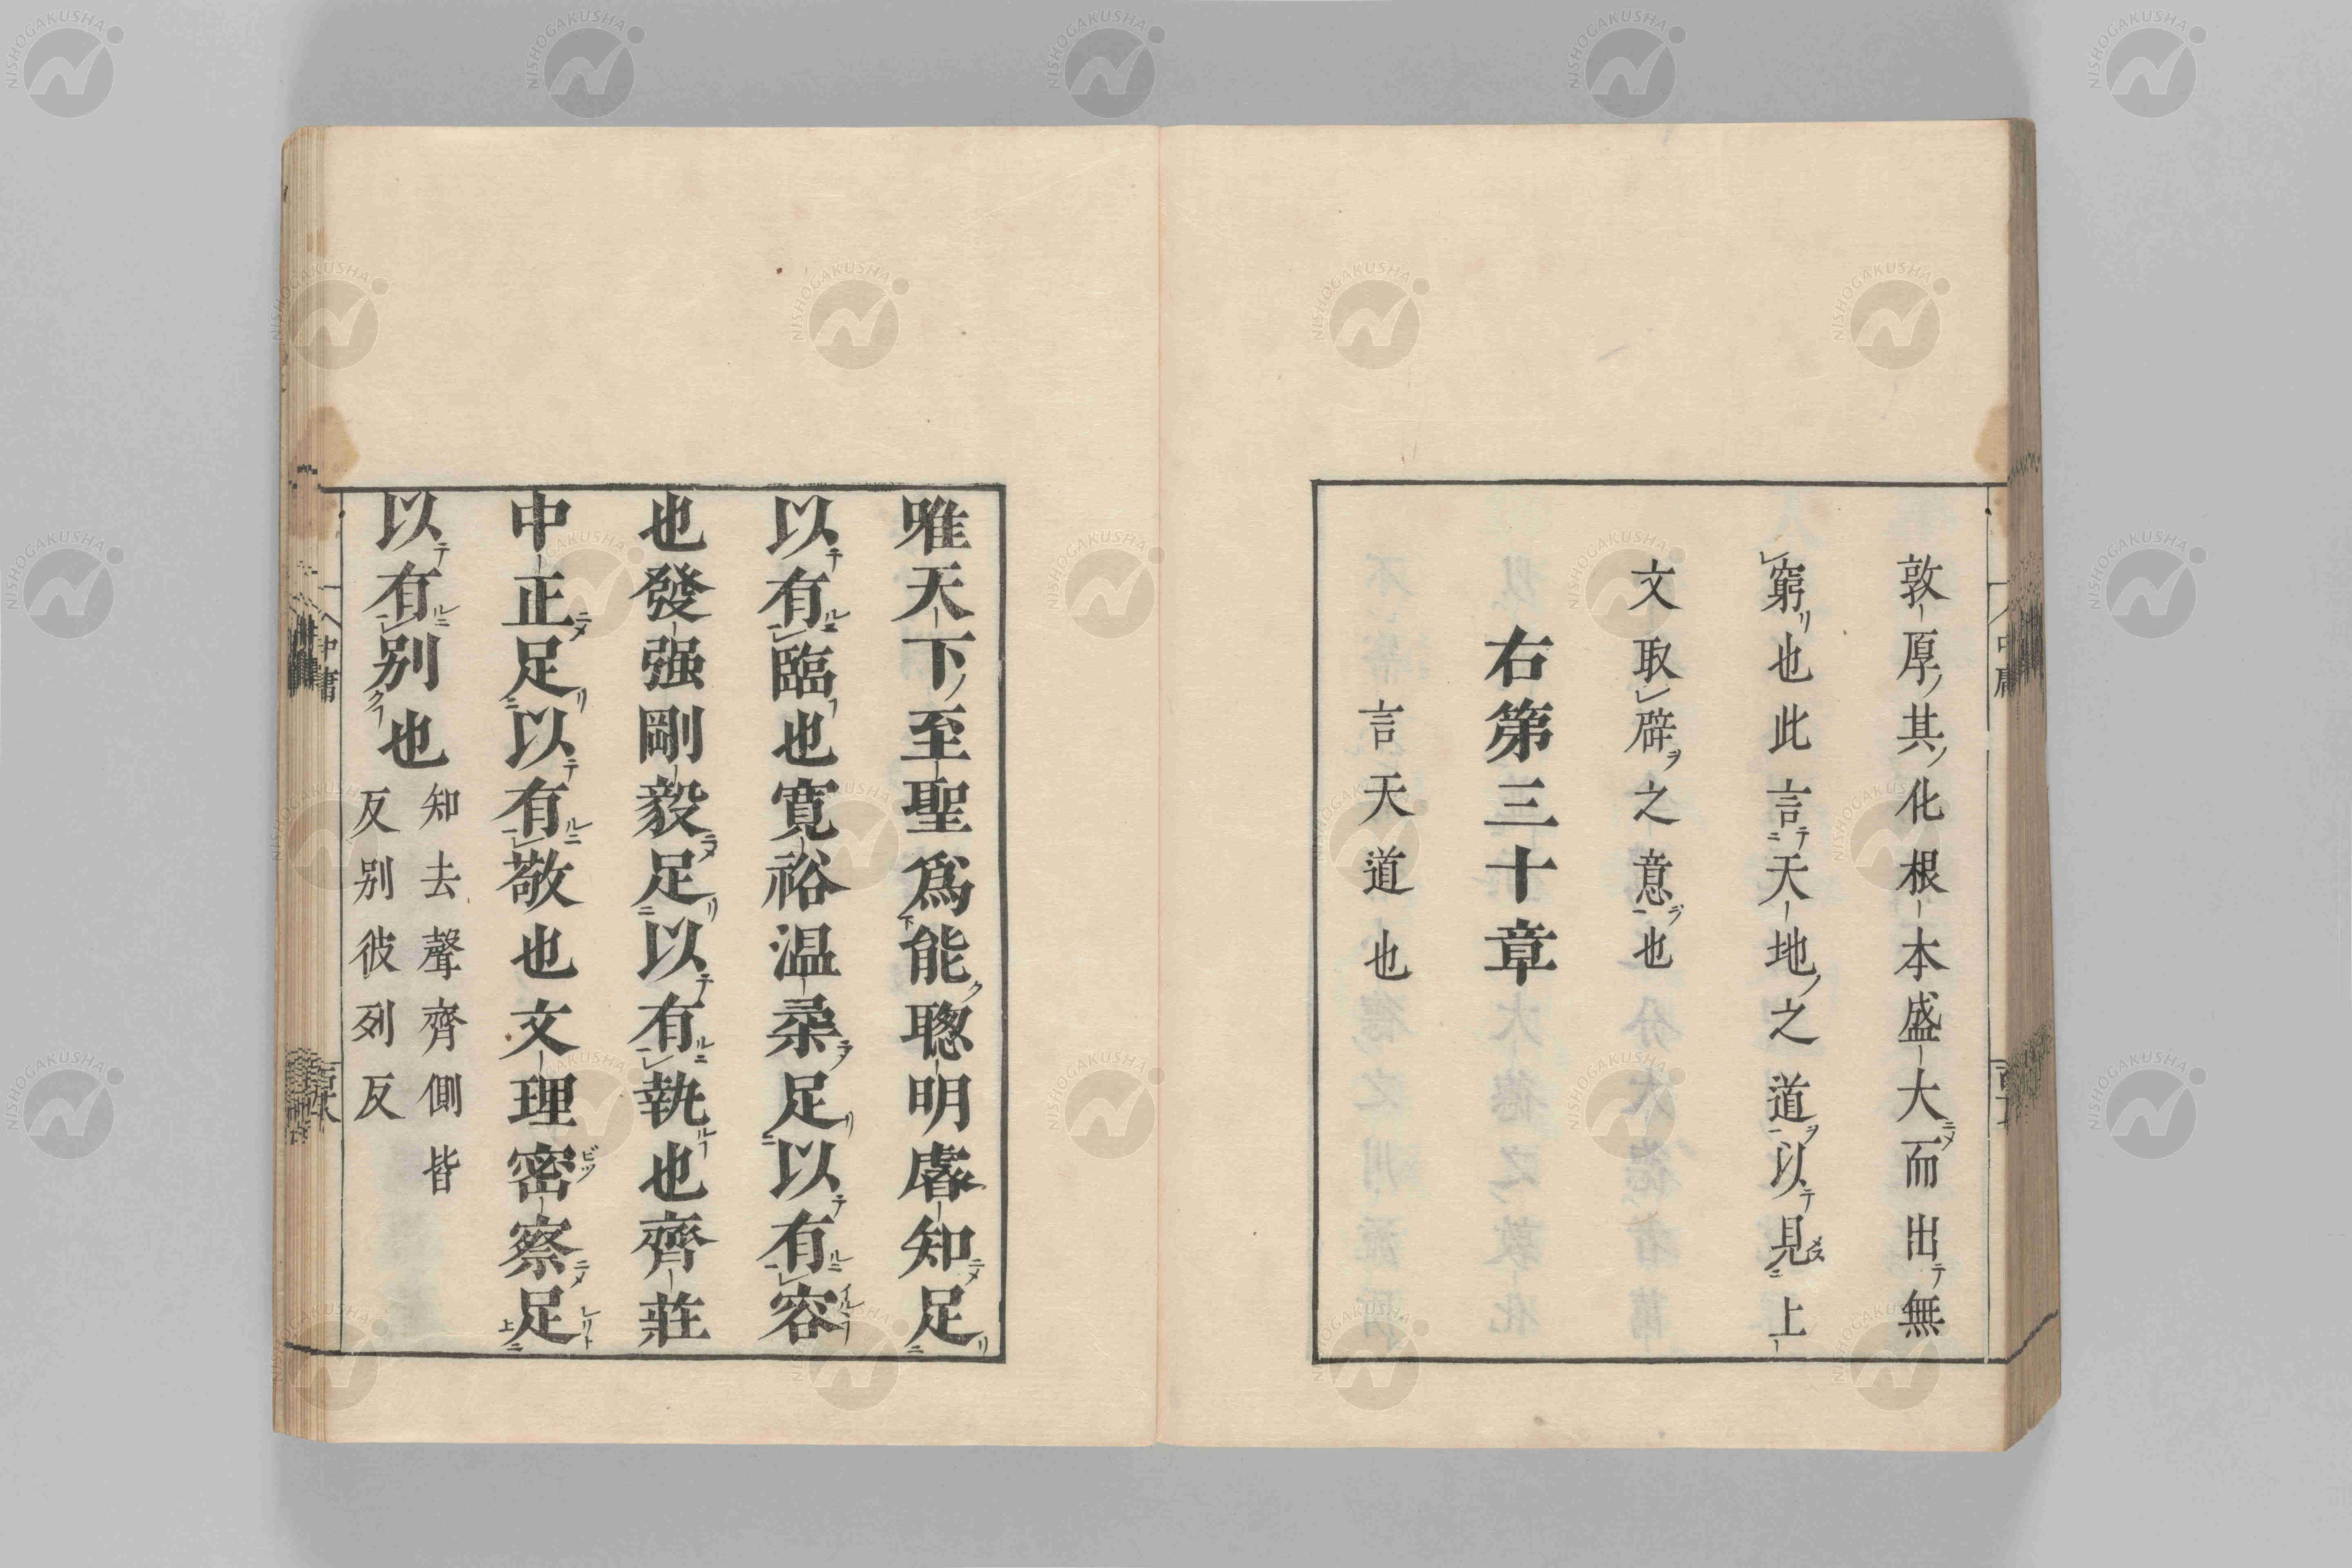 敦厚其化根本盛大而出無
窮也此言天地之道以見上
文取辟之意也
右第三十章
言天道也
唯天下至聖爲能聰明睿知足
以有臨也寬裕温柔足以有容
也發强剛毅足以有執也齊莊
中正足以有敬也文理密察足
以有别也
知去聲齊側皆
反别彼列反
中庸
NISHOGAKUSHA